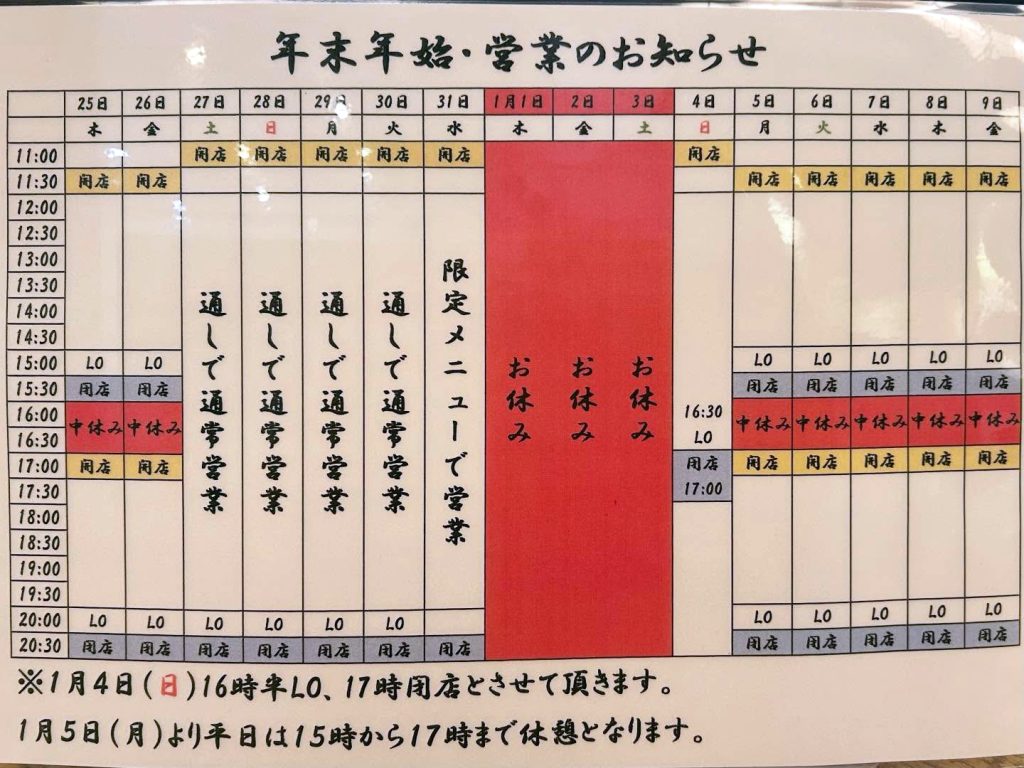 年末年始・営業のお知らせ
25日 26日 27日 28日 29日 30日 31日 1月1日 2日 3日 4日 5日 6日 7日 8日 9日
木 金 土 日 月 火 水 木 金 土 日 月 火 水 木 金
11:00 開店 開店 開店 開店 開店 開店
11:30 開店 開店 開店 開店 開店 開店 開店
12:00
12:30
13:00
13:30
14:00
14:30
15:00 LO LO LO LO LO LO LO
15:30 閉店 閉店 閉店 閉店 閉店 閉店 閉店
16:00
16:30
中休み 中休み 中休み 中休み 中休み 中休み 中休み
17:00 開店 開店 開店 開店 開店 開店 開店
17:30
18:00
18:30
19:00
19:30
20:00 LO LO LO LO LO LO LO LO LO LO LO
20:30 閉店 閉店 閉店 閉店 閉店 閉店 閉店 閉店 閉店 閉店 閉店 閉店
通しで通常営業
通しで通常営業
通しで通常営業
通しで通常営業
限定メニューで営業
お休み
お休み
お休み
16:30
LO
閉店
17:00
※1月4日(日)16時半LO、17時閉店とさせて頂きます。
1月5日(月)より平日は15時から17時まで休憩となります。